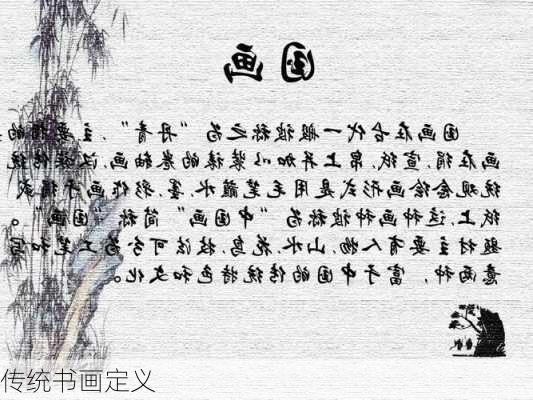 国画
国画在古代一般被称之为“丹青”，主要指的
画在绢,宣纸,帛上并加以装裱的卷轴画,汉族传统
统观念绘画形式是用毛笔蘸水,墨,彩作画于绢或
纸上,这种画种被称为“中国画”简称“国画”。
题材主要有人物,山水,花鸟,技法可分为工笔和写
意两种，富于中国的传统特色和文化。
传统书画定义